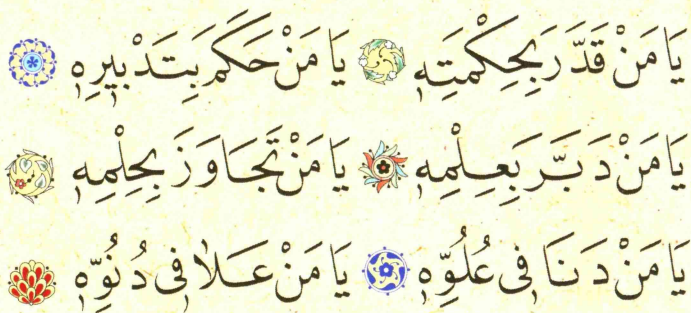 يَا مَنْ قَدَّرَ بِحِكْمَتِهِ يَا مَنْ حَكَمَ بِتَدْبِيرِهِ
يَا مَنْ دَبَّرَ بِعِلْمِهِ يَا مَنْ تَجَاوَزَ بِحِلْمِهِ
يَا مَنْ دَنَا فِى عُلُوِّهِ يَا مَنْ عَلَا فِى دُنُوِّهِ